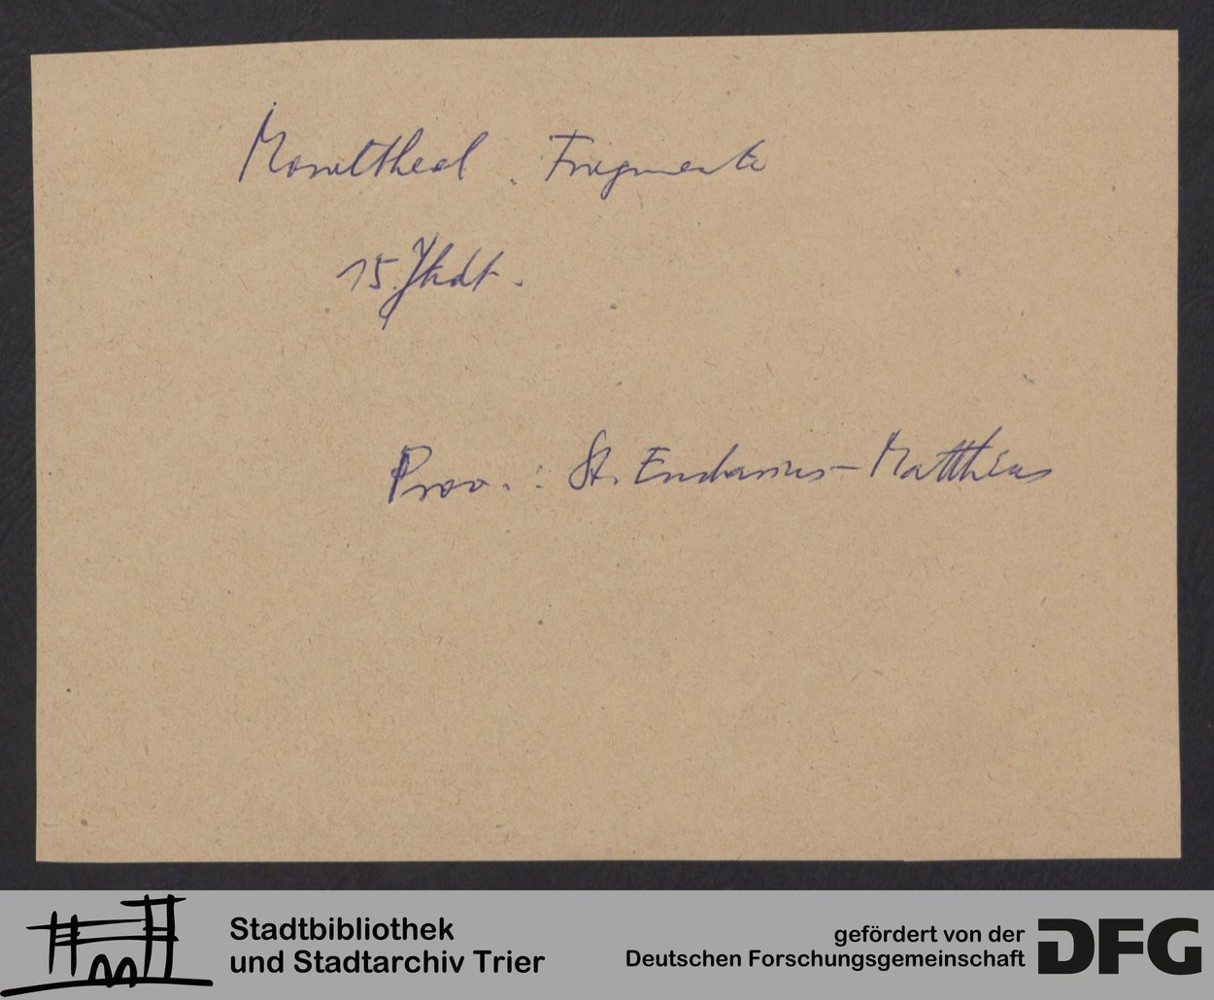 Moraltheol. Fragmente
15. Jhdt.
Prov.: St. Eucharius-Matthias
Stadtbibliothek
und Stadtarchiv Trier
gefördert von der
Deutschen Forschungsgemeinschaft
DFG